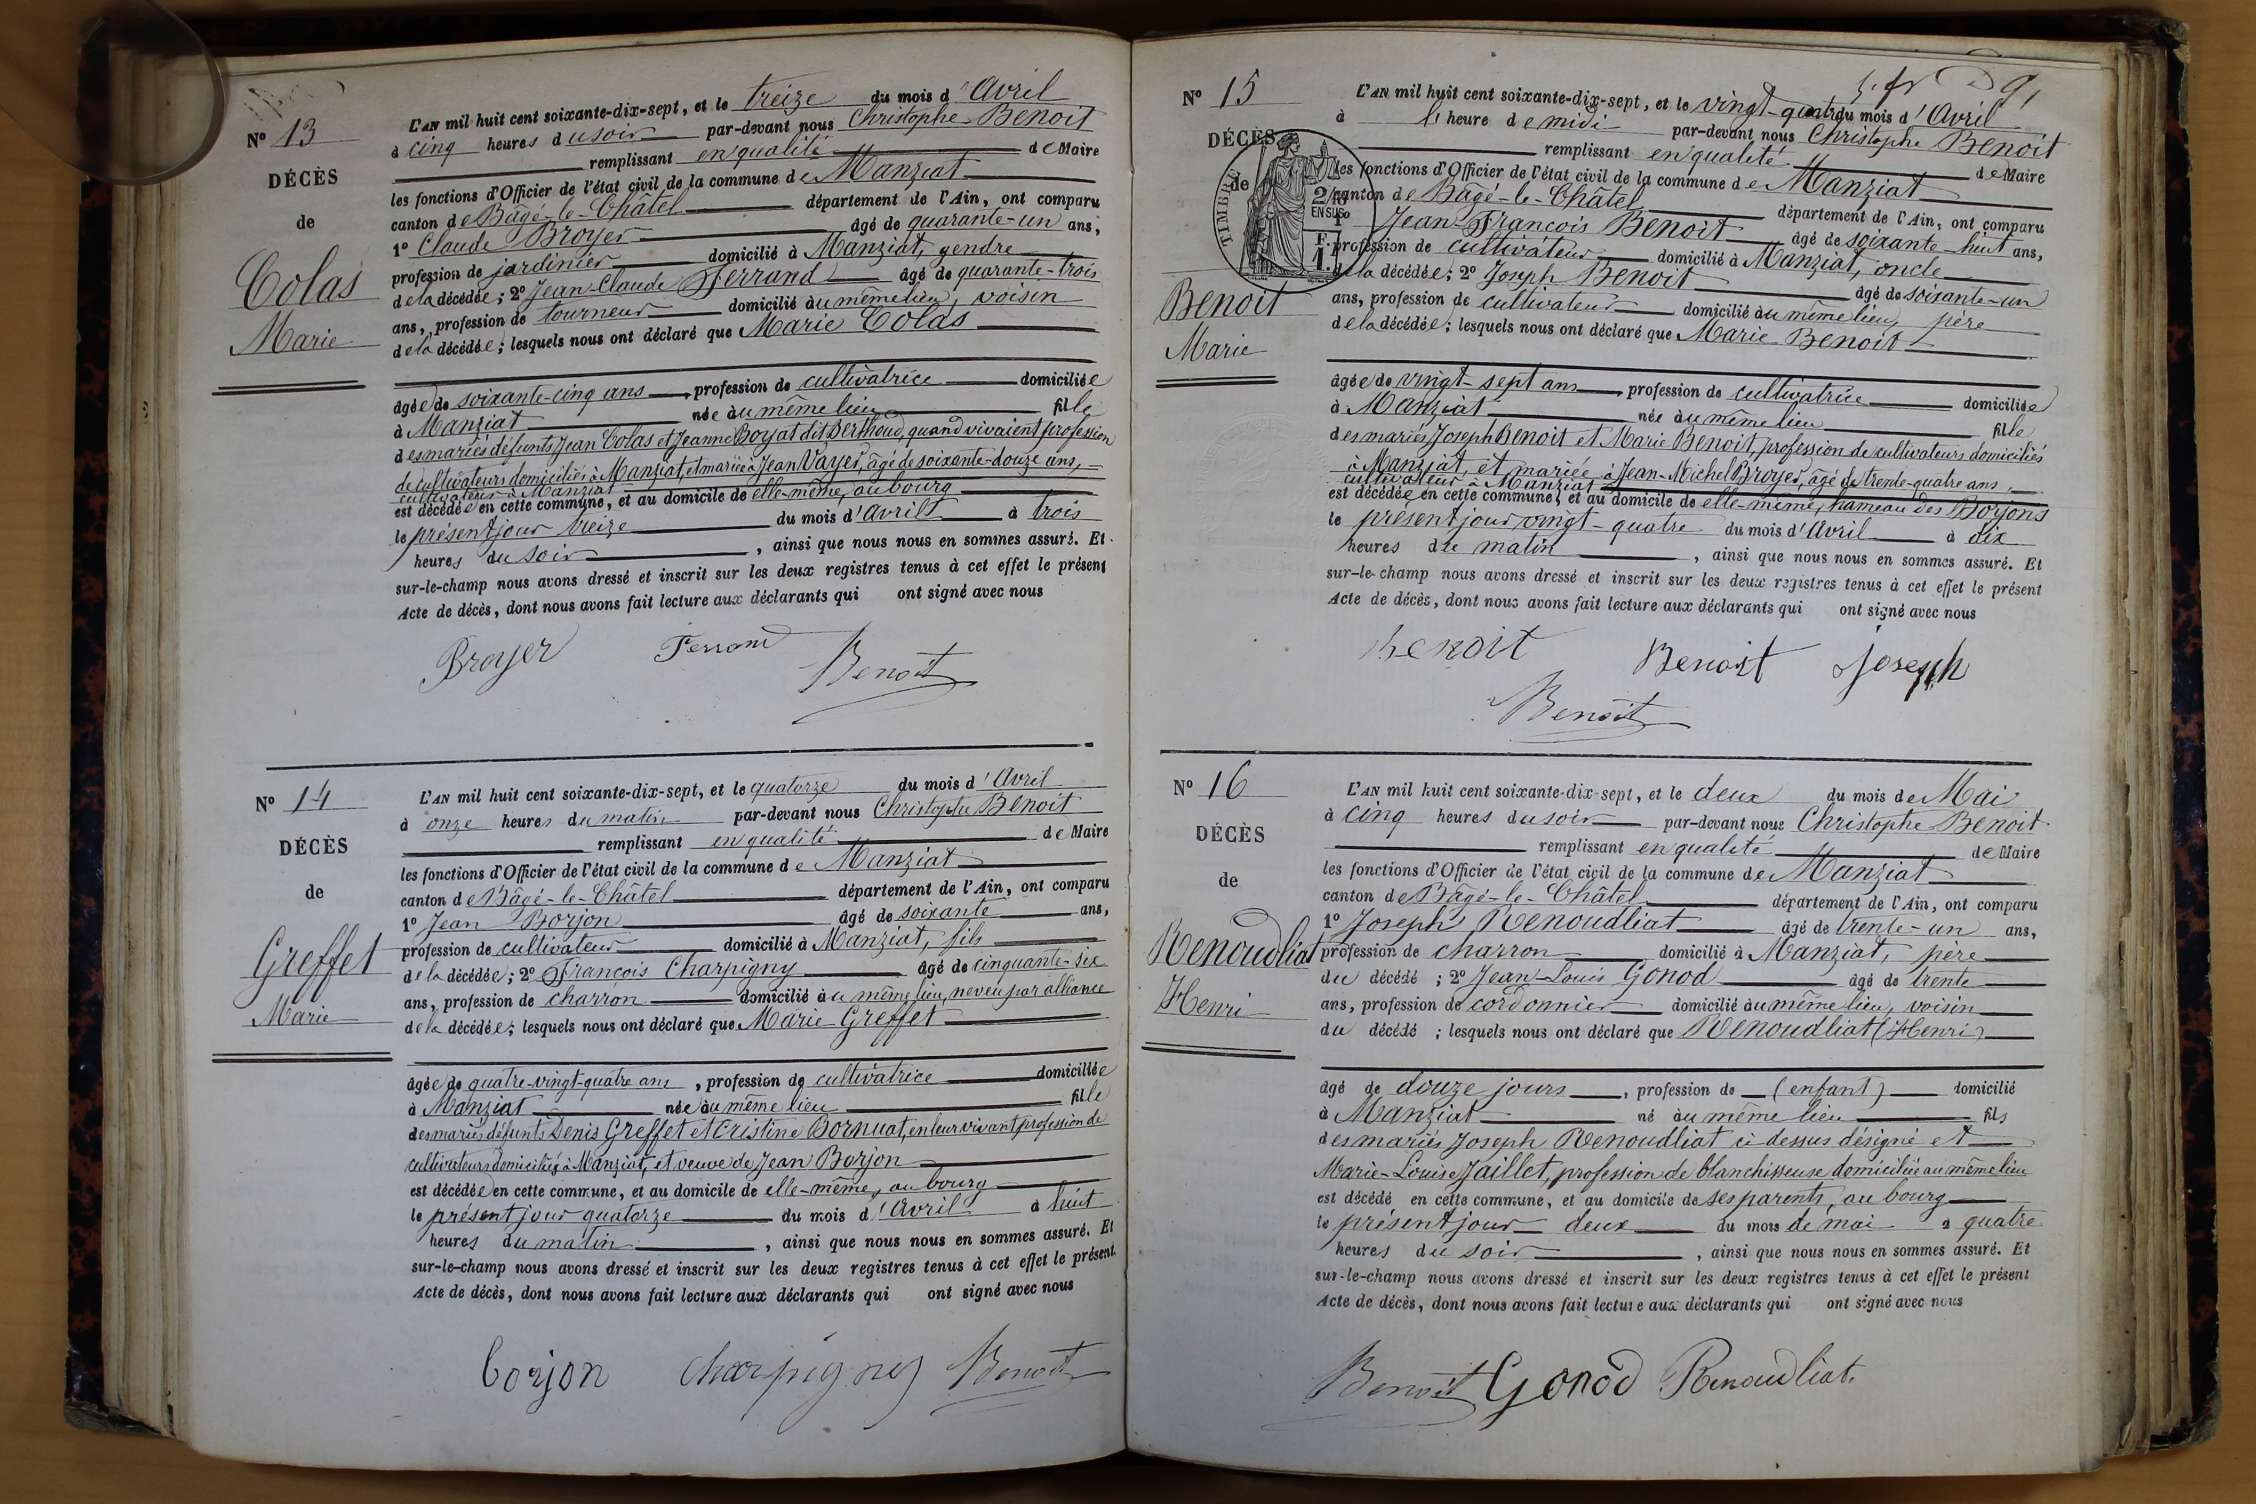 N° 13
DÉCÈS
de
Colas
Marie
L'AN mil huit cent soixante-dix-sept, et le treize du mois d'Avril
à cinq heures du soir par-devant nous Christophe Benoit
remplissant en qualité de Maire
les fonctions d'Officier de l'état civil de la commune de Manziat
canton de Bâgé-le-Châtel département de l'Ain, ont comparu
1° Claude Broyer âgé de quarante-un ans,
profession de jardinier domicilié à Manziat, gendre
de la décédée; 2° Jean-Claude Ferrand âgé de quarante-trois
ans, profession de tourneur domicilié au même lieu, voisin
de la décédée; lesquels nous ont déclaré que Marie Colas
âgée de soixante-cinq ans, profession de cultivatrice domiciliée
à Manziat née au même lieu fille
des mariés défunts Jean Colas et Jeanne Boyat dit Berthoud, quand vivaient profession
de cultivateurs domiciliés à Manziat, et mariée à Jean Vayer, âgé de soixante-douze ans,
cultivateur à Manziat
est décédée en cette commune, et au domicile de elle-même, au bourg
le présent jour treize du mois d'Avril à trois
heures du soir, ainsi que nous nous en sommes assuré. Et
sur-le-champ nous avons dressé et inscrit sur les deux registres tenus à cet effet le présent
Acte de décès, dont nous avons fait lecture aux déclarants qui ont signé avec nous
Broyer Ferrand Benoit
N° 14
DÉCÈS
de
Greffet
Marie
L'AN mil huit cent soixante-dix-sept, et le quatorze du mois d'Avril
à onze heures du matin par-devant nous Christophe Benoit
remplissant en qualité de Maire
les fonctions d'Officier de l'état civil de la commune de Manziat
canton de Bâgé-le-Châtel département de l'Ain, ont comparu
1° Jean Borjon âgé de soixante ans,
profession de cultivateur domicilié à Manziat, fils
de la décédée; 2° François Charpigny âgé de cinquante-six
ans, profession de charron domicilié au même lieu, neveu par alliance
de la décédée; lesquels nous ont déclaré que Marie Greffet
âgée de quatre-vingt-quatre ans, profession de cultivatrice domiciliée
à Manziat née au même lieu fille
des mariés défunts Denis Greffet et Cristine Bornuat, en leur vivant profession de
cultivateurs domiciliés à Manziat, et veuve de Jean Borjon
est décédée en cette commune, et au domicile de elle-même, au bourg
le présent jour quatorze du mois d'Avril à huit
heures du matin, ainsi que nous nous en sommes assuré. Et
sur-le-champ nous avons dressé et inscrit sur les deux registres tenus à cet effet le présent
Acte de décès, dont nous avons fait lecture aux déclarants qui ont signé avec nous
borjon charpigny Benoit
N° 15
DÉCÈS
de
TIMBRE
2/10 EN SUS
F. 1.
Benoit
Marie
L'AN mil huit cent soixante-dix-sept, et le vingt-quatre du mois d'Avril
à l'heure de midi par-devant nous Christophe Benoit
remplissant en qualité de Maire
les fonctions d'Officier de l'état civil de la commune de Manziat
canton de Bâgé-le-Châtel département de l'Ain, ont comparu
1° Jean-François Benoit âgé de soixante-huit ans,
profession de cultivateur domicilié à Manziat, oncle
de la décédée; 2° Joseph Benoit âgé de soixante-un
ans, profession de cultivateur domicilié au même lieu, père
de la décédée; lesquels nous ont déclaré que Marie Benoit
âgée de vingt-sept ans, profession de cultivatrice domiciliée
à Manziat née au même lieu fille
des mariés Joseph Benoit et Marie Benoit, profession de cultivateurs domiciliés
à Manziat, et mariée à Jean-Michel Broyer, âgé de trente-quatre ans,
cultivateur à Manziat
est décédée en cette commune, et au domicile de elle-même, hameau des Boyons
le présent jour vingt-quatre du mois d'Avril à dix
heures de matin, ainsi que nous nous en sommes assuré. Et
sur-le-champ nous avons dressé et inscrit sur les deux registres tenus à cet effet le présent
Acte de décès, dont nous avons fait lecture aux déclarants qui ont signé avec nous
Benoit Benoit Joseph
Benoit
N° 16
DÉCÈS
de
Renoudliat
Henri
L'AN mil huit cent soixante-dix-sept, et le deux du mois de Mai
à cinq heures du soir par-devant nous Christophe Benoit
remplissant en qualité de Maire
les fonctions d'Officier de l'état civil de la commune de Manziat
canton de Bâgé-le-Châtel département de l'Ain, ont comparu
1° Joseph Renoudliat âgé de trente-un ans,
profession de charron domicilié à Manziat, père
du décédé; 2° Jean-Louis Gonod âgé de trente
ans, profession de cordonnier domicilié au même lieu, voisin
du décédé; lesquels nous ont déclaré que Renoudliat (Henri)
âgé de douze jours, profession de (enfant) domicilié
à Manziat né au même lieu fils
des mariés Joseph Renoudliat ci dessus désigné et
Marie-Louise Jaillet, profession de blanchisseuse domiciliée au même lieu
est décédé en cette commune, et au domicile de ses parents, au bourg
le présent jour deux du mois de mai à quatre
heures du soir, ainsi que nous nous en sommes assuré. Et
sur-le-champ nous avons dressé et inscrit sur les deux registres tenus à cet effet le présent
Acte de décès, dont nous avons fait lecture aux déclarants qui ont signé avec nous
Benoit Gonod Renoudliat.